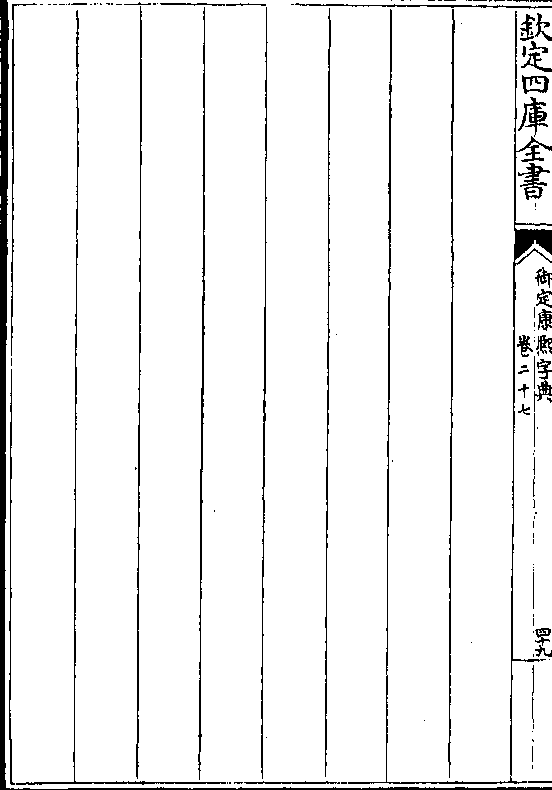 欽定四庫全書
御定康熙字典
卷二十七
四十九